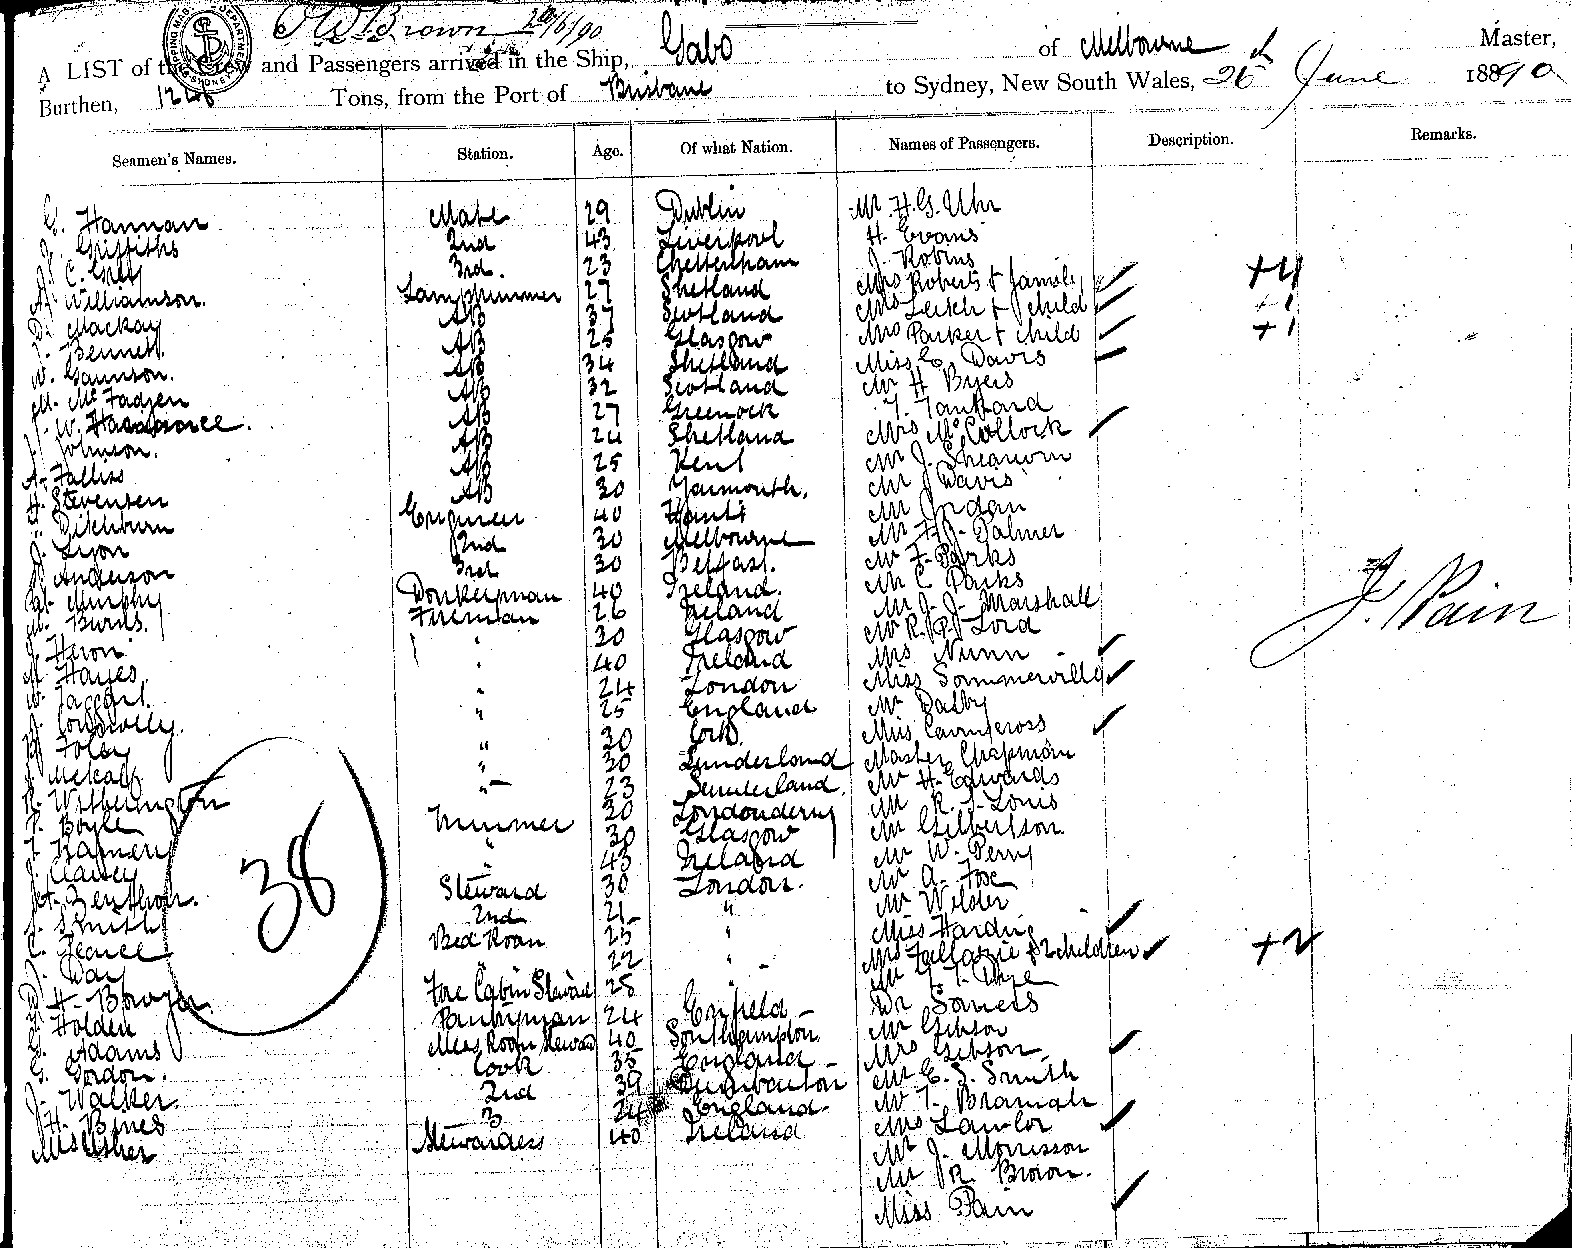 T W Brown 26/6/90
A LIST of the Crew and Passengers arrived in the Ship, Gabo of Melbourne Master,
Burthen, Tons, from the Port of Brisbane to Sydney, New South Wales, 26th June 1890
Seamen's Names. Station. Age. Of what Nation. Names of Passengers. Description. Remarks.
G. Hannan Mate 29 Dublin Mr H.G. Uhr
J. Griffiths 2nd 43 Liverpool H. Evans
C. Grey 3rd. 23 Cheltenham J. Robins
A. Williamson. Lamptrimmer 27 Shetland Mrs Roberts & family +4
D. Mackay AB 37 Scotland Mrs Leitch & child +1
Bennett. AB 25 Glasgow Mrs Parker & child +1
W. Gaunson. AB 34 Shetland Miss E. Davis
M. McFadzen AB 32 Scotland Mr H Byers
J. W. AB 27 Greenock T. Tankard
J. Johnson. AB 24 Shetland Mrs McCollock
A. Falliss AB 25 Kent Mr J. Shearwin
H. Stevensen AB 30 Yarmouth. Mr J Davis
Ditchburn Engineer 40 Hants Mr Jordan
J. Lyon 2nd 30 Melbourne Mr H.J. Palmer
Anderson 3rd 30 Belfast. Mr F. Parks
M. Murphy Donkeyman 40 Ireland. Mr C Parks
M. Burns. Fireman 26 Ireland Mr J. J. Marshall
J. Heron " 30 Glasgow Mr R. P. Lord
M Hayes. " 40 Ireland Mrs Nunn
W. Taggart. " 24 London Miss Sommerville
J. " 25 England Mr Dalby
Foley " 30 Cork. Miss Cairncross
J. Metcalf " 30 Sunderland Master Chapman
R. Witherington " 23 Sunderland. Mr H. Edwards
P. Boyle Trimmer 30 Londonderry Mr R. J. Louis
T. " 30 Glasgow Mr Gilbertson.
J. " 43 Ireland Mr W. Perry
Steward 30 London. Mr A. Fox
J. Smith 2nd 21 " Mr Wilder
C. Bed Room 25 " Miss Harding
J. Day " 22 " Mrs & 2 children +2
H. Bowyer Fore Cabin Steward 25 " Mr
Holden Pantryman 24 Enfield Dr Somers
G. Adams Mess Room Steward 40 Southampton. Mr Gibson
G. Gordon. Cook 35 England Mrs Gibson
J. Walker. 2nd 39 Dumbarton Mr E. J. Smith
H. Bines 3 24 England. Mr T. Bramah
Mrs Usher Stewardess 40 Ireland Mrs Lawlor
Mr J. Morrisson
Mr R. Brown.
Miss Pain
J. Pain
38